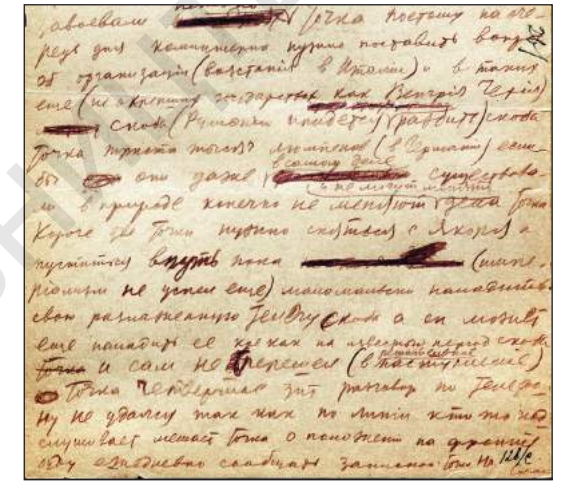 завоевали точка Поэтому на оче-
редь дня коминтерна нужно поставить вопр.
об организации (возстанія в Италии) и в таких
еще (не окрепших государствах как Венгрія Чехія)
скобка (Румынию придется разбить) скобка
точка триста тысяч (в Германии) если-
бы они даже в самом деле существова-
ли в природе конечно не меняют дела точка
Короче точка нужно сняться с якоря и
пуститься в путь пока (импе-
риализм не успел еще) маломальски наладить
свою разлаженную телегу скобка а он может
еще наладить ее кое как на известный период скобка
и сам не перешел (в решительное наступление)
Точка Четвертая зпт разговор по телефо-
ну не удался так как по линии кто то под
слушивает мешает точка о положении на фронте
буду ежедневно сообщать запиской точка